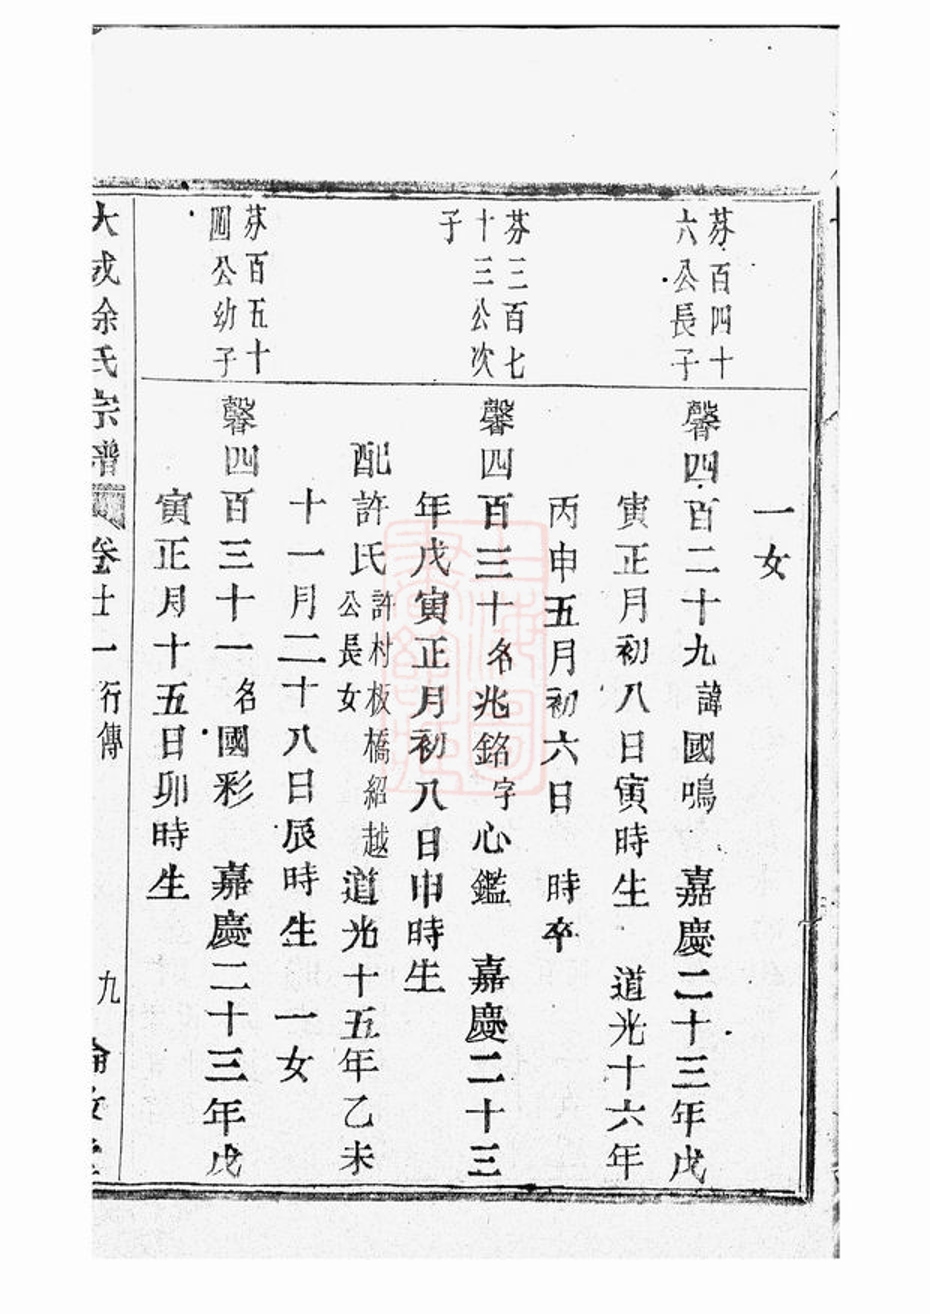 一女
芬百四十
六公長子
馨四百二十九諱國鳴 嘉慶二十三年戊
寅正月初八日寅時生 道光十六年
丙申五月初六日 時卒
芬三百七
十三公次
子
馨四百三十名兆銘字心鑑 嘉慶二十三
年戊寅正月初八日申時生
配許氏許村板橋紹越公長女道光十五年乙未
十一月二十八日辰時生 一女
芬百五十
四公幼子
馨四百三十一名國彩 嘉慶二十三年戊
寅正月十五日卯時生
大成徐氏宗譜 卷廿一 行傳 九